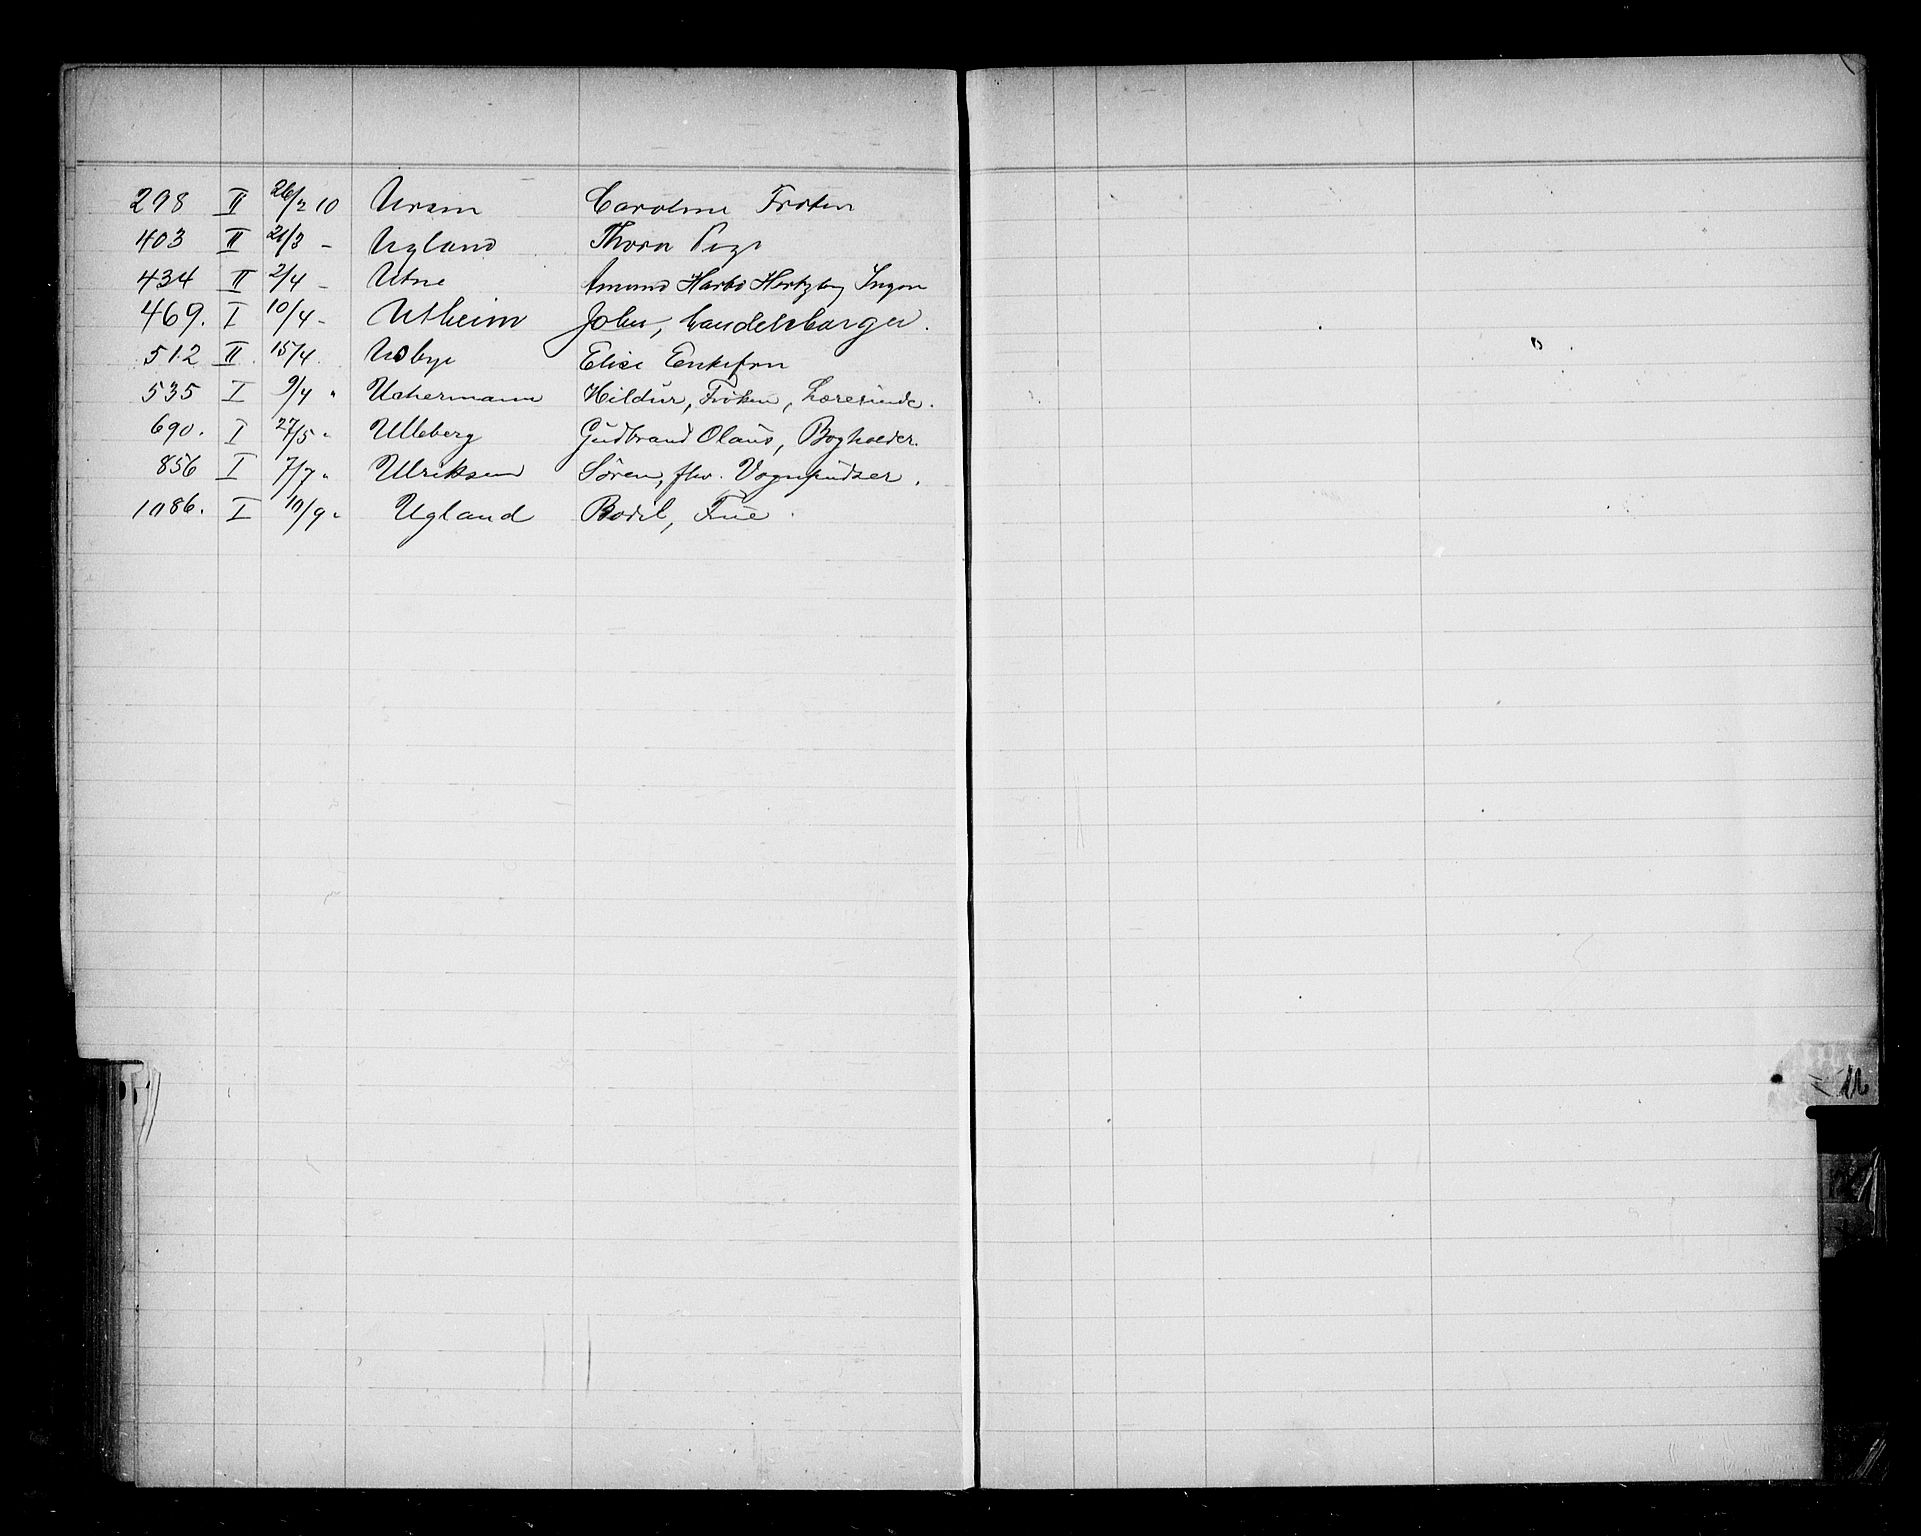 298 II 26/2 10 Uram Caroline Frøken
403 II 21/3 - Ugland Thora Pige
434 II 2/4 - Utne Amund Harbo Hertzberg Ingen
469. I 10/4 - Utheim John, Handelsborger.
512 II. 15/4. Usbye Elise Enkefru
535 I 9/4 " Uchermann Hildur, Frøken, Lærerinde.
690. I 27/5 " Ulleberg Gudbrand Olaus, Bogholder.
856 I 7/7 " Ulriksen Søren, fhv. Vognpudser.
1086. I 10/9 " Ugland Bodil, Frue.
U